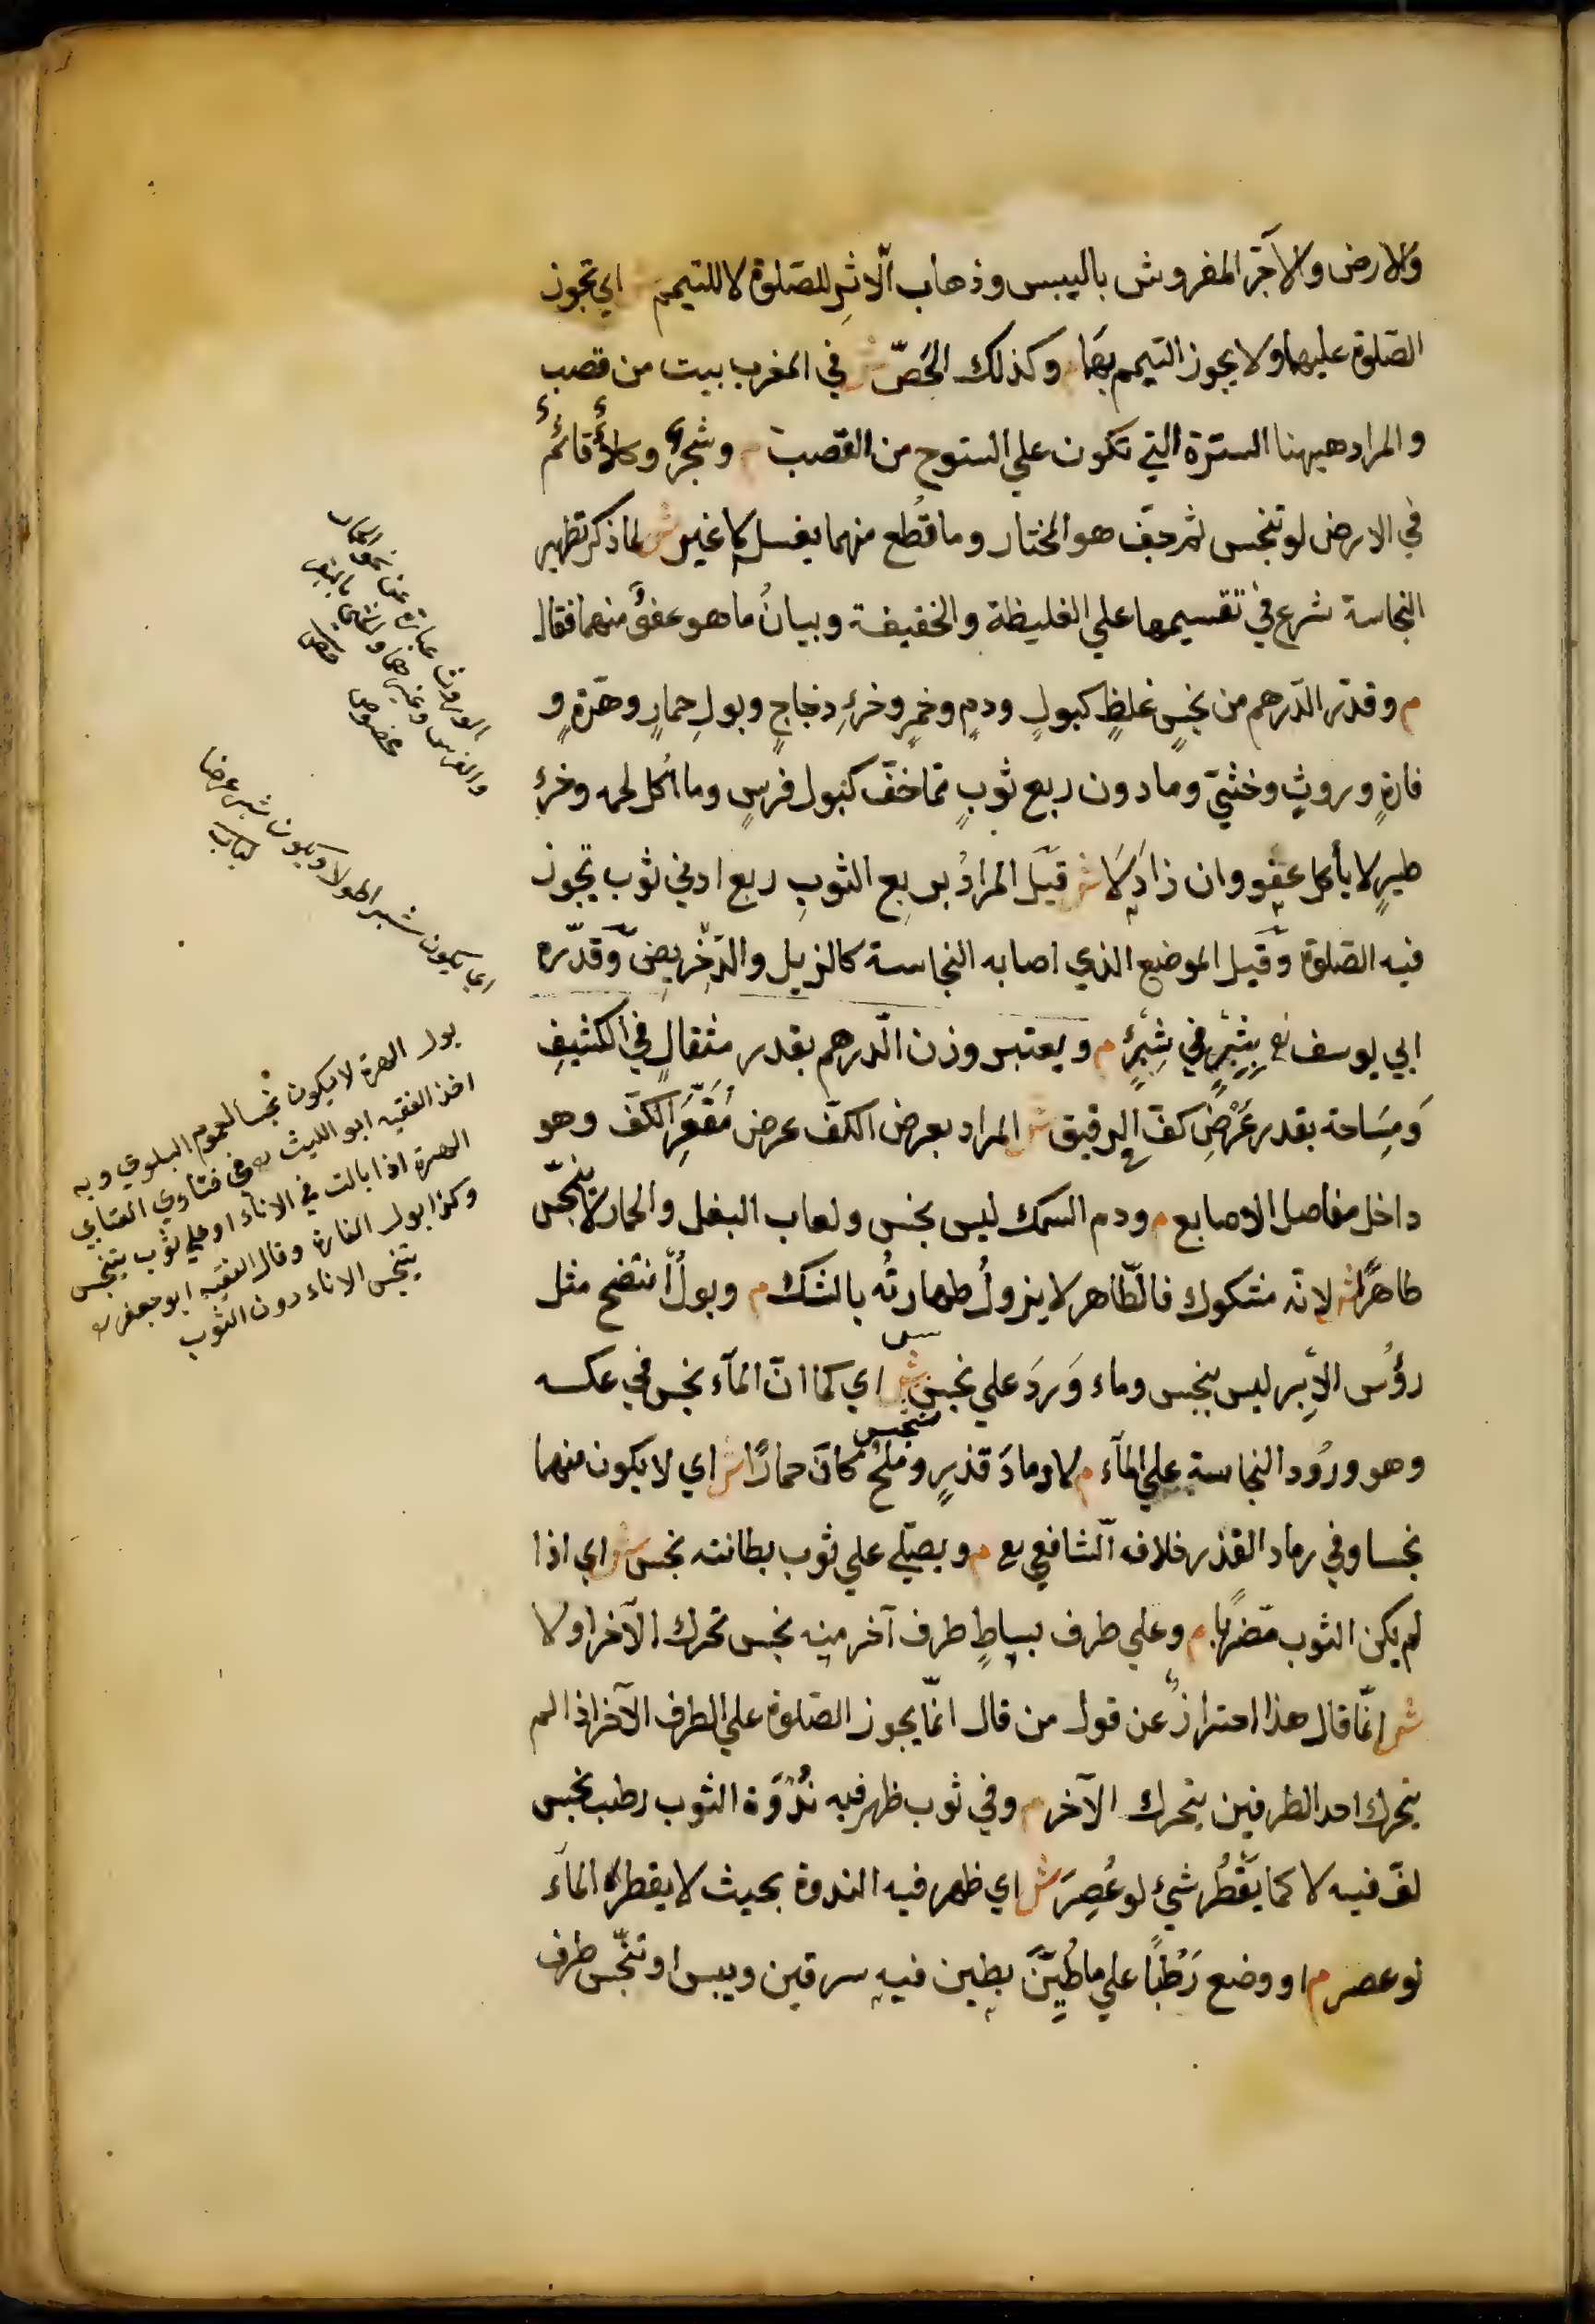 والارض والآجر المفروش باليبس وذهاب الاثرِ للصّلوة لا للتيمم ش اي تجوز
الصّلوة عليهما ولا يجوز التيمم بهما م وكذلك الخُصّ ش في المغرب بيت من قصب
والمراد هيهنا السترة التي تكون علي السّطوح من القصب م وشجرٌ وكلأٌ قائمٌ
في الارض لو تنجس ثم جفّ هو المختار وما قُطع منهما يغسل لا غير ش لما ذكر تطهير
النجاسة شرع في تقسيمها علي الغليظة والخفيفة وبيانُ ما هو عفوٌ منهما فقال
م وقدر الدّرهم من نجسٍ غلظٍ كبولٍ ودمٍ وخمرٍ وخرءِ دجاجٍ وبولِ حمارٍ وهرّةٍ و
فارةٍ وروثٍ وخثيٍ وما دون ربع ثوبٍ ممّا خفّ كبول فرسٍ وما اُكل لحمه وخرءِ
طيرٍ لا يأكل عفو وان زاد لا ش قيل المرادُ بربعِ الثوبِ ربع ادني ثوب تجوز
فيه الصّلوة وقيل الموضع الذي اصابه النجاسة كالزيل والدّخريص وقدّره
ابي يوسف بشبرٍ في شبرٍ م ويعتبر وزن الدرهم بقدر مثقالٍ في الكثيفِ
وَمِسَاحة بقدر عَرْضِ كفّ في الرقيق ش المراد بعرض الكفّ عرض مُقَعَّرِ الكفّ وهو
داخل مفاصل الاصابع م ودم السمك ليس بنجس ولعاب البغل والحمار لا ينجّس
طاهرًا ش لانّه مشكوك فالطّاهر لا يزولُ طهارتُه بالشك م وبولٌ انتضح مثل
رؤُس الاِبر ليس بنجس وماء وَردَ علي نجسٍ نجس ش اي كما انّ الماء نجس في عكسه
وهو ورُود النجاسة علي الماء م لا رمادَ قذرٍ وملحٌ كان حمارًا ش اي لا يكون منهما
نجسا وفي رماد القذر خلاف الشافعي م ويصلّي علي ثوب بطانته نجس ش اي اذا
لم يكن الثوب مضرّبا م وعلي طرف بساطٍ طرف آخر منه نجس تحرك الآخر او لا
ش انّما قال هذا احترازٌ عن قول من قال انّما يجوز الصّلوة علي الطرف الآخر اذا لم
يتحرك احد الطرفين يتحرك الآخر م وفي ثوب ظهر فيه نُدْوَة الثوب رطب نجس
لفّ فيه لا كما يَقْطُر شيءٌ لو عُصِرَ ش اي ظهر فيه الندوة بحيث لا يقطر الماء
لو عصر م او وضع رَطْبًا علي ما طُيِّنَ بطين فيه سرقين ويبس او تنجّس طرف
اي يكون شبر اطولا ويكون شبر عرضا
بول الهرة لا يكون نجسا لعموم البلوي وبه
اخذ الفقيه ابو الليث وفي فتاوي العتابي
الهرة اذا بالت في الاناء او علي ثوب يتنجس
وكذا بول الفارة وقال الفقيه ابو جعفر
يتنجس الاناء دون الثوب